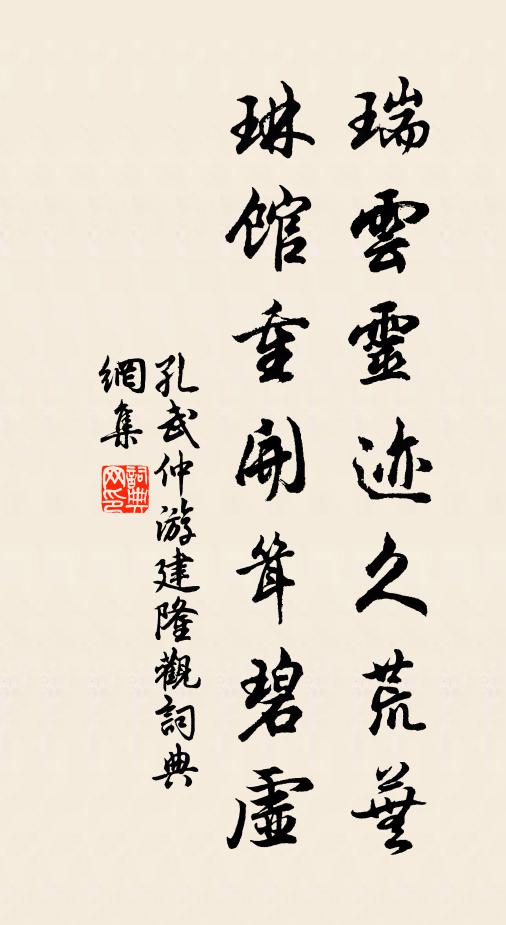 瑞雲靈迹久荒蕪
琳館重開耸碧虛
孔武仲游建隆觀詞典
網集
詞典
网印